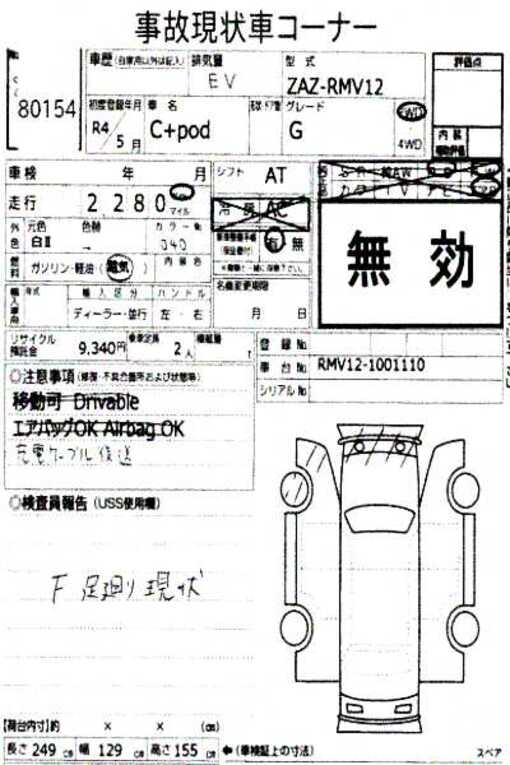 事故現状車コーナー
車歴 (自家用以外は記入) 排気量 型式 評価点
80154 EV ZAZ-RMV12
初度登録年月 車名 形状・ドア数 グレード
R4/5月 C+pod G 2WD 4WD 内装
車検 年 月 シフト AT
走行 2,280 km マイル 冷房 AC
外色 元色 色替 カラーNo
白II → 040 有 無
燃料 ガソリン・軽油 電気 内装色
無効
輸入車用 年式 輸入区分 ハンドル 名義変更期限
ディーラー・並行 左・右 月 日
リサイクル預託金 9,340円 乗車定員 2人 積載量 t 登録No
車台No RMV12-1001110
シリアルNo
◎注意事項 (修復・不具合箇所および状態等)
移動可 Drivable
エアバッグOK Airbag OK
充電ケーブル後送
◎検査員報告 (USS使用欄)
F 足廻り現状
【荷台内寸】約 × × (cm)
長さ 249 cm 幅 129 cm 高さ 155 cm ←(車検証上の寸法) スペア